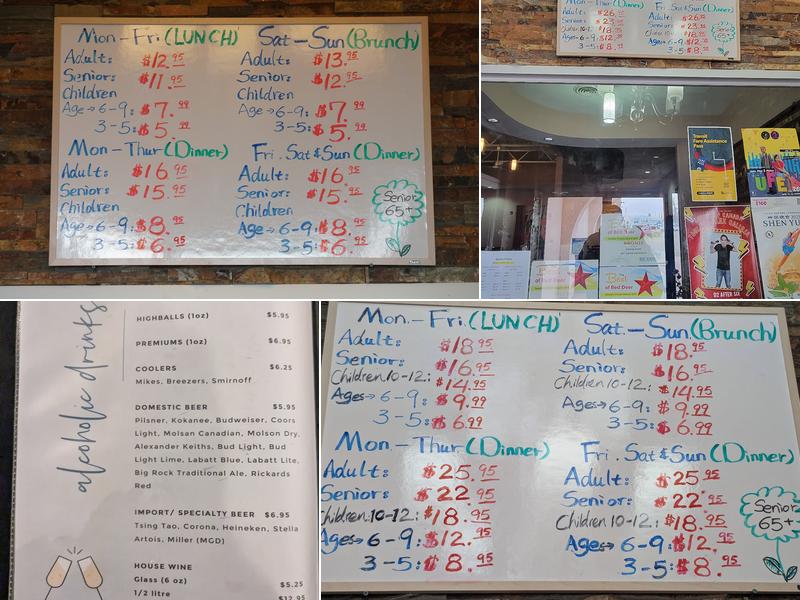 Mon-Fri (LUNCH) Sat-Sun (Brunch)
Adult: $12.95 Adult: $13.95
Seniors: $11.95 Seniors: $12.95
Children Children
Age→6-9: $7.99 Age→6-9: $7.99
3-5: $5.99 3-5: $5.99
Mon-Thur (Dinner) Fri. Sat & Sun (Dinner)
Adult: $16.95 Adult: $16.95
Seniors: $15.95 Senior: $15.95
Children Children
Age→6-9: $8.95 Age→6-9: $8.95
3-5: $6.95 3-5: $6.95
Senior
65+
Mon-Thur (Dinner) Fri. Sat & Sun (Dinner)
Transit
Fare Assistance
Pass
Best
of Red Deer
Best
of Red Deer
Best
of Red Deer
SHEN YUN
alcoholic drinks
HIGHBALLS (1oz) $5.95
PREMIUMS (1oz) $6.95
COOLERS $6.25
Mikes, Breezers, Smirnoff
DOMESTIC BEER $5.95
Pilsner, Kokanee, Budweiser, Coors
Light, Molsan Canadian, Molson Dry,
Alexander Keiths, Bud Light, Bud
Light Lime, Labatt Blue, Labatt Lite,
Big Rock Traditional Ale, Rickards
Red
IMPORT/ SPECIALTY BEER $6.95
Tsing Tao, Corona, Heineken, Stella
Artois, Miller (MGD)
HOUSE WINE
Glass (6 oz) $5.25
1/2 litre $12.95
Mon.-Fri. (LUNCH) Sat-Sun (Brunch)
Adult: $18.95 Adult: $18.95
Senior: $16.95 Senior: $16.95
Children 10-12.: $14.95 Children 10-12: $14.95
Ages→6-9: $9.99 Ages→6-9: $9.99
3-5: $6.99 3-5: $6.99
Mon-Thur (Dinner) Fri. Sat & Sun (Dinner)
Adult: $25.95 Adult: $25.95
Seniors: $22.95 Senior: $22.95
Children: 10-12: $18.95 Children 10-12.: $18.95
Ages→ 6-9: $12.95 Ages→ 6-9: $12.95
3-5: $8.95 3-5: $8.95
Senior
65+